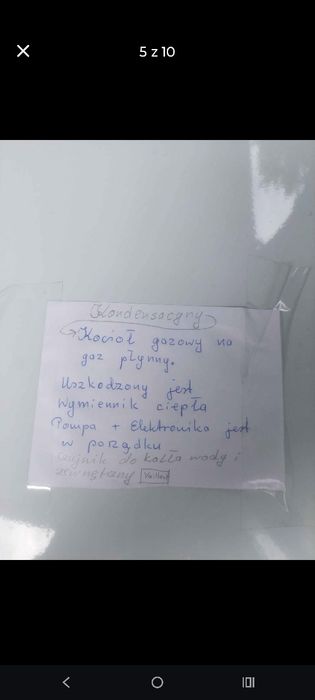 5 z 10
Kondensacyjny
Kocioł gazowy na
gaz płynny.
Uszkodzony jest
Wymiennik ciepła
Pompa + Elektronika jest
w porządku
czujnik do kotła wody i
zewnętrzny Vaillant